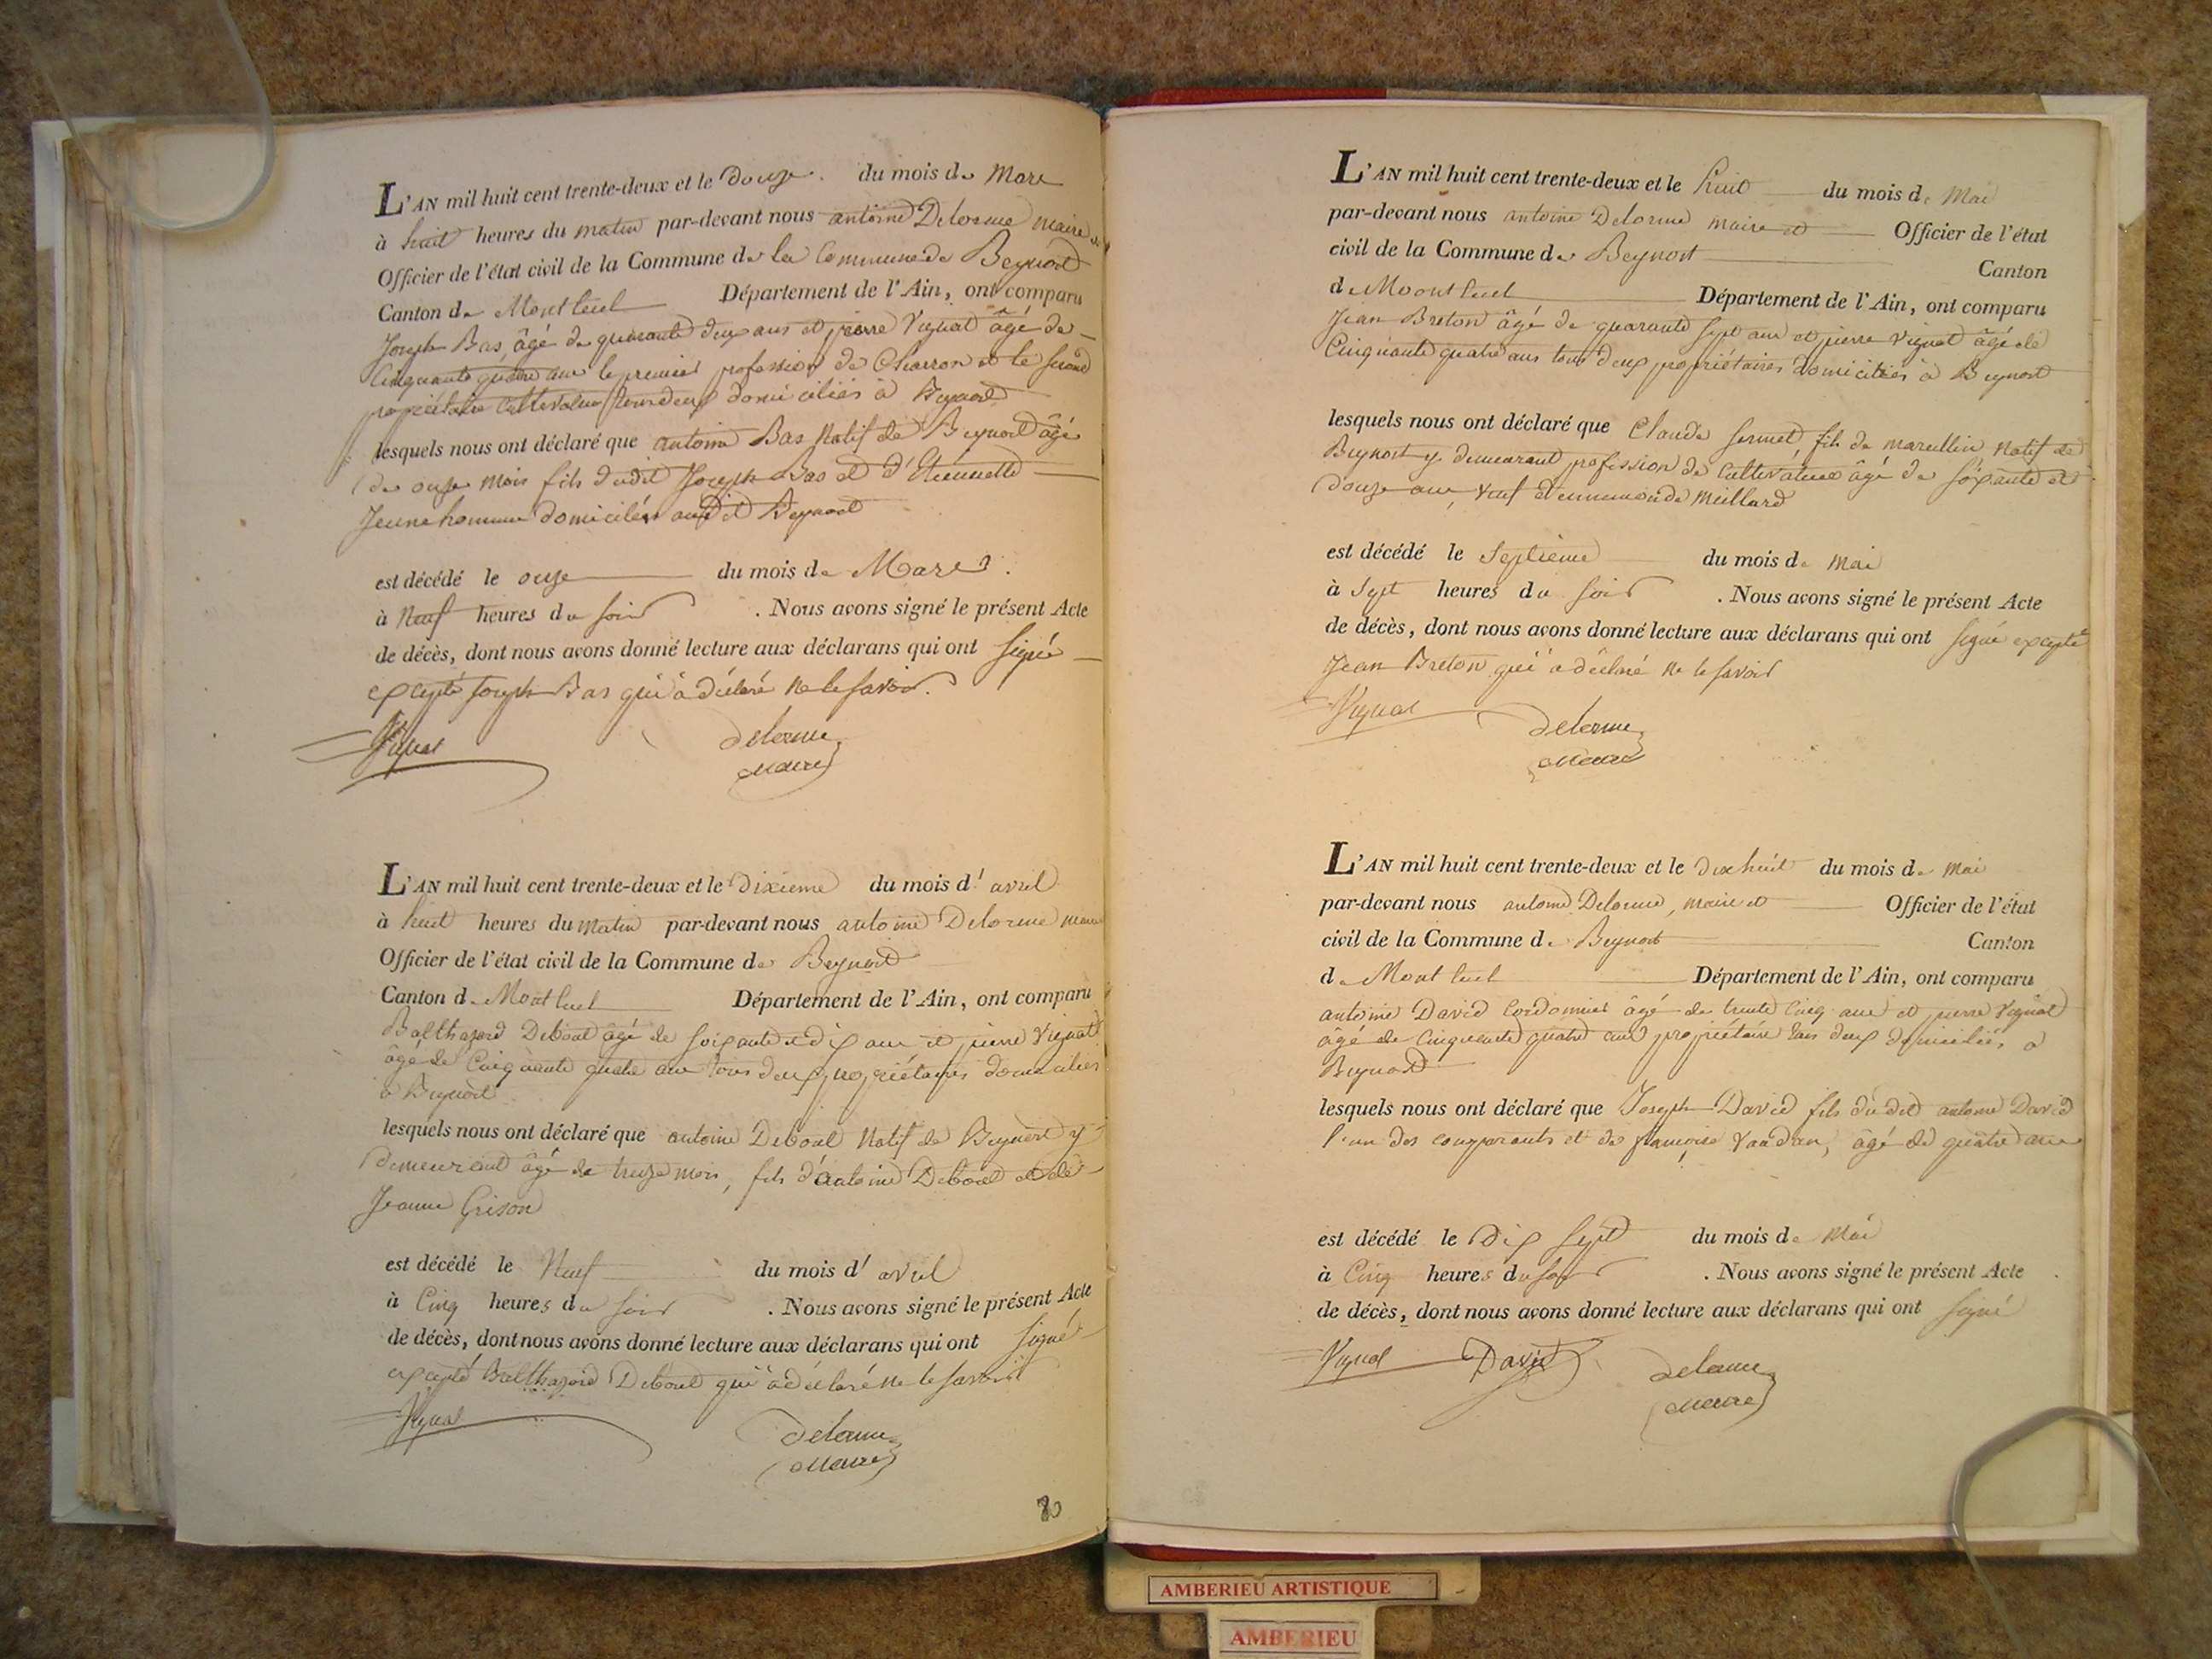 L'AN mil huit cent trente-deux et le douze du mois de Mars
à huit heures du matin par-devant nous antoine Delorme maire et
Officier de l'état civil de la Commune de la Commune de Beynost
Canton de Montluel Département de l'Ain, ont comparu
Joseph Bas, âgé de quarante deux ans et pierre Vignat âgé de
Cinquante quatre ans le premier profession de Charron et le second
propriétaire Cultivateur tous deux domiciliés à Beynost
lesquels nous ont déclaré que antoine Bas Natif de Beynost âgé
de onze mois fils dudit Joseph Bas et d'Etiennette
Jeunehomme domiciliés audit Beynost
est décédé le onze du mois de Mars
à Neuf heures du soir . Nous avons signé le présent Acte
de décès, dont nous avons donné lecture aux déclarans qui ont signé
excepté Joseph Bas qui a déclaré ne le savoir.
Vignat delorme
maire
L'AN mil huit cent trente-deux et le Dixieme du mois d' avril
à huit heures du matin par-devant nous antoine Delorme maire
Officier de l'état civil de la Commune de Beynost
Canton de Montluel Département de l'Ain, ont comparu
Balthazard Deboat âgé de soixante et dix ans et pierre Vignat
âgé de Cinquante quatre ans tous deux propriétaires domiciliés
à Beynost
lesquels nous ont déclaré que antoine Deboat Natif de Beynost y
Demeurant âgé de treize mois, fils d'antoine Deboat et de
Jeanne Grison
est décédé le Neuf du mois d' avril
à Cinq heures du soir . Nous avons signé le présent Acte
de décès, dont nous avons donné lecture aux déclarans qui ont signé
excepté Balthazard Deboat qui a déclaré ne le savoir
Vignat delorme
maire
80
L'AN mil huit cent trente-deux et le huit du mois de Mai
par-devant nous antoine Delorme maire et Officier de l'état
civil de la Commune de Beynost Canton
de Montluel Département de l'Ain, ont comparu
Jean Breton âgé de quarante sept ans et pierre Vignat âgé de
Cinquante quatre ans tous deux propriétaires domiciliés à Beynost
lesquels nous ont déclaré que Claude fils de marcellin natif de
Beynost y demeurant profession de Cultivateur âgé de soixante et
douze ans, veuf d'ennemonde Meillard
est décédé le Septième du mois de Mai
à Sept heures du soir . Nous avons signé le présent Acte
de décès, dont nous avons donné lecture aux déclarans qui ont signé excepté
Jean Breton qui a déclaré ne le savoir
Vignat delorme
maire
L'AN mil huit cent trente-deux et le dix huit du mois de Mai
par-devant nous antoine Delorme, maire et Officier de l'état
civil de la Commune de Beynost Canton
de Montluel Département de l'Ain, ont comparu
antoine David Cordonnier âgé de trente Cinq ans et pierre Vignat
âgé de Cinquante quatre ans propriétaire tous deux domiciliés à
Beynost
lesquels nous ont déclaré que Joseph David fils du dit antoine David
l'un des comparants et de françoise âgé de quatre ans
est décédé le Dix Sept du mois de Mai
à Cinq heures du soir . Nous avons signé le présent Acte
de décès, dont nous avons donné lecture aux déclarans qui ont signé
Vignat David delorme
maire
AMBERIEU ARTISTIQUE
AMBERIEU